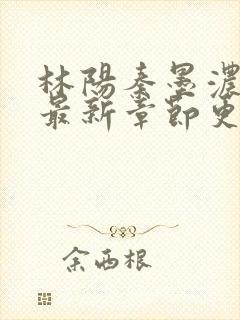 林陽秦墨濃
最新章節更
余西根